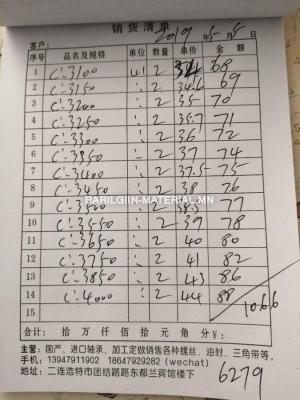 销货清单
2019年5月5日
客户:
序号 品名及规格 单位 数量 单价 金额
1 C-3100 41 2 34 68
2 C-3150 〃 2 34.6 69
3 C-3200 〃 2 35 70
4 C-3250 〃 2 35.7 71
5 C-3300 〃 2 36 72
6 C-3350 〃 2 37 74
7 C-3400 〃 2 37.5 75
8 C-3450 〃 2 38 76
9 C-3500 〃 2 38.5 77
10 C-3550 〃 2 39 78
11 C-3650 〃 2 40 80
12 C-3750 〃 2 41 82
13 C-3850 〃 2 43 86
14 C-4000 〃 2 44 88
15
1066
合计: 拾 万 仟 佰 拾 元 角 分 ¥:
主营：国产、进口轴承、加工定做销售各种螺丝、油封、三角带等。
手机：13947911902 18647929282 (wechat)
地址：二连浩特市团结路路东都兰宾馆楼下
6279
BARILGIIN-MATERIAL.MN